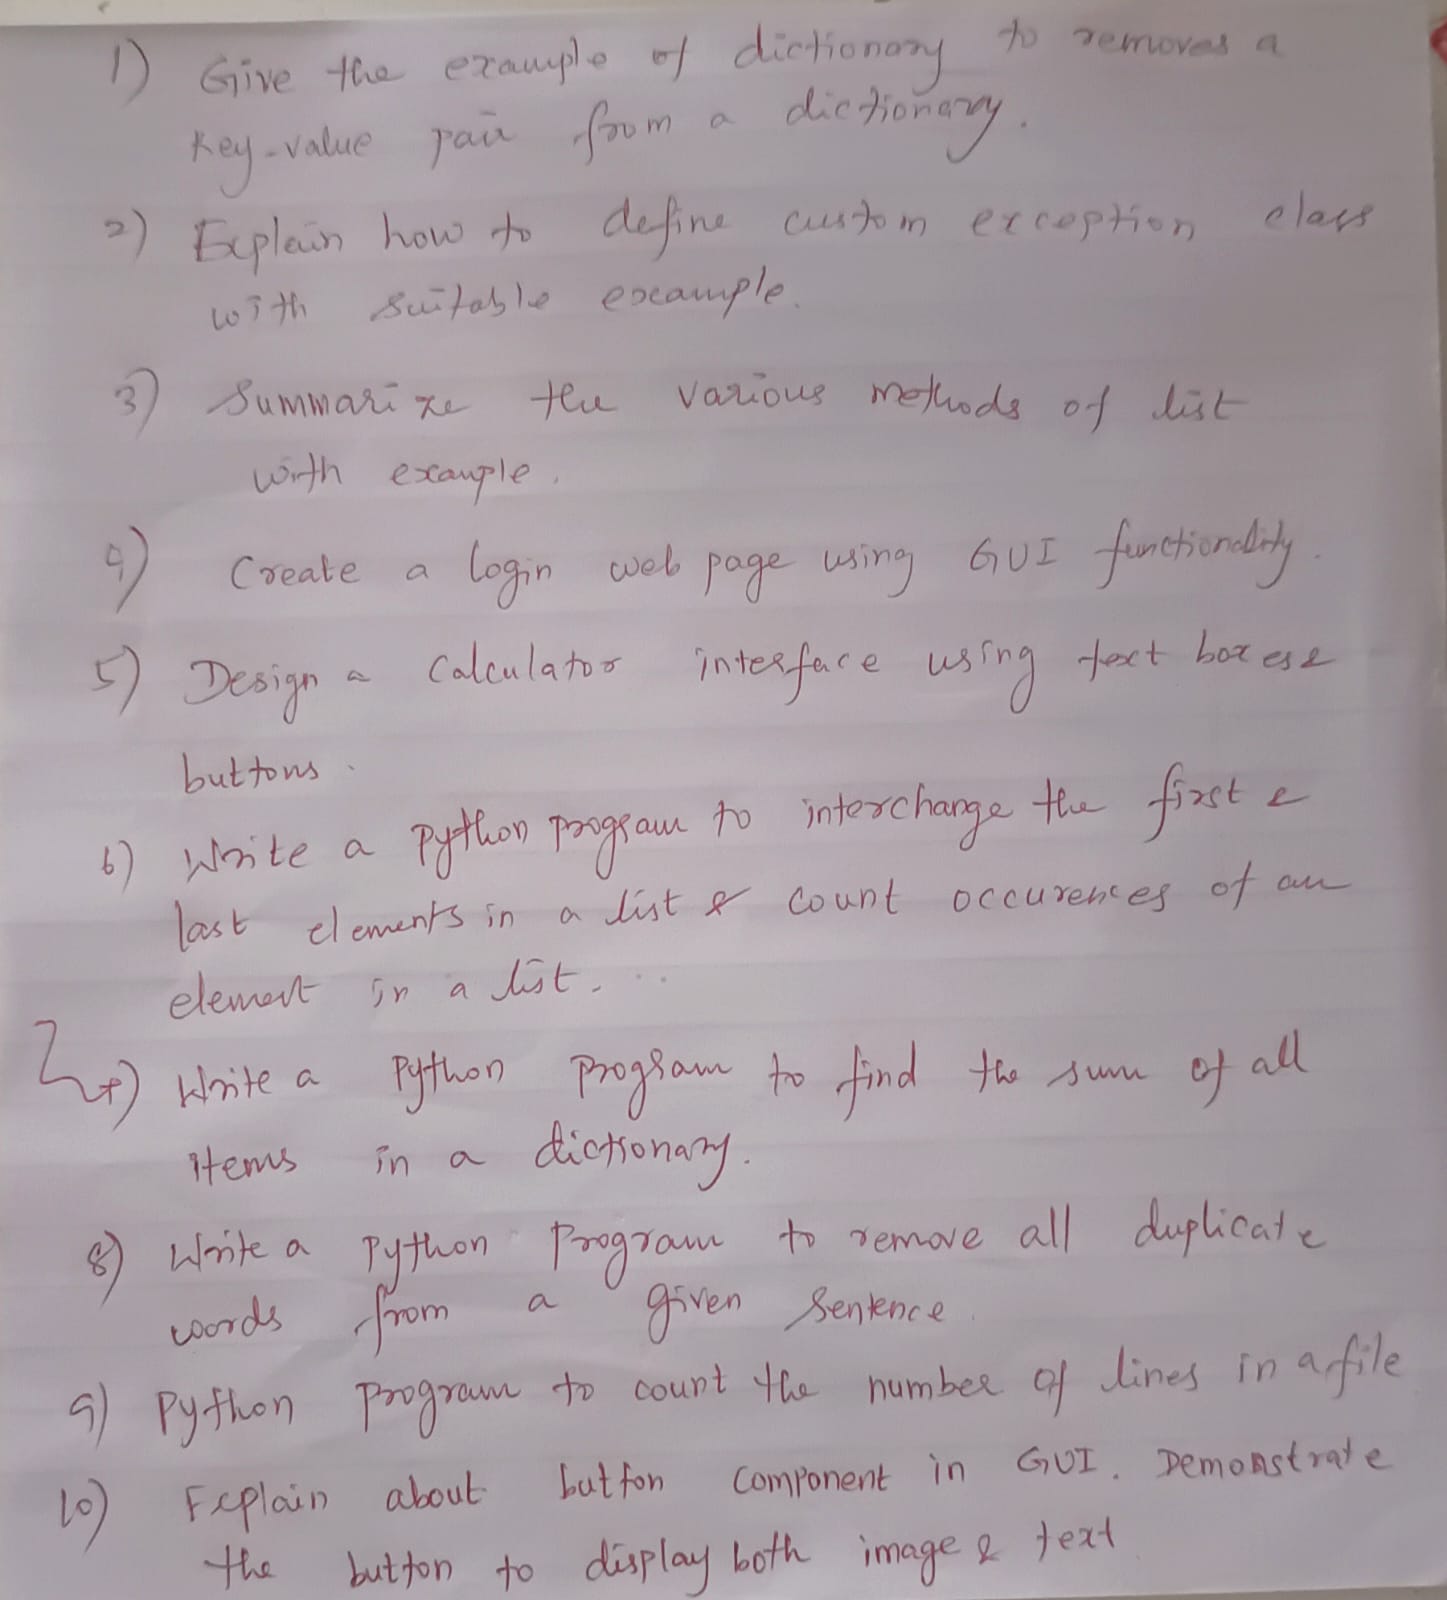 1) Give the example of dictionary to removes a
key-value pair from a dictionary.
2) Explain how to define custom exception class
with suitable example.
3) Summarize the various methods of list
with example.
4) Create a login web page using GUI functionality.
5) Design a Calculator interface using text boxes &
buttons.
6) Write a python program to interchange the first &
last elements in a list & count occurences of an
element in a list.
7) Write a Python program to find the sum of all
items in a dictionary.
8) Write a Python Program to remove all duplicate
words from a given sentence.
9) Python program to count the number of lines in a file
10) Explain about button component in GUI. Demonstrate
the button to display both image & text